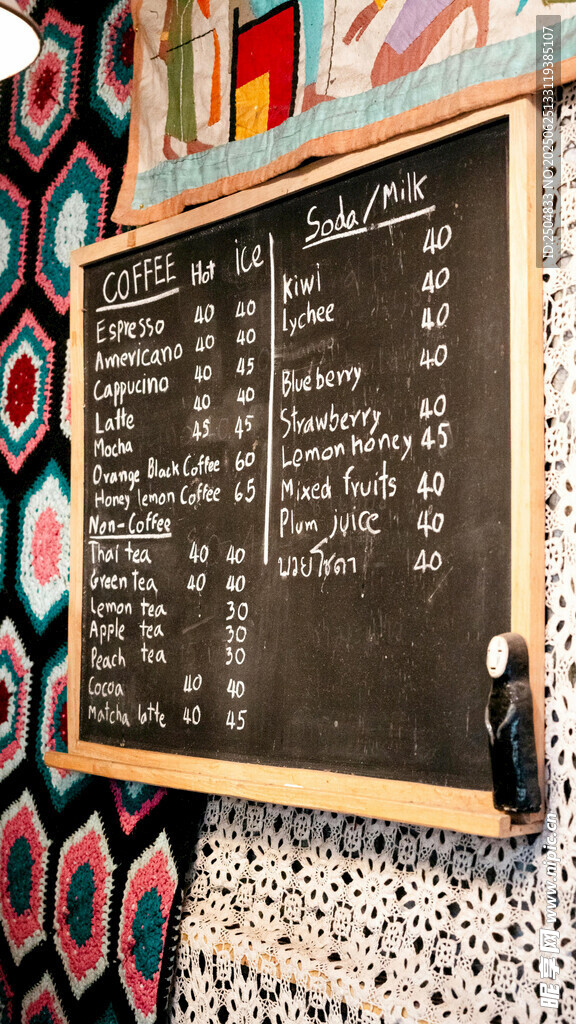 COFFEE Hot ice
Espresso 40 40
Americano 40 40
Cappucino 40 45
Latte 40 40
Mocha 45 45
Orange Black Coffee 60
Honey lemon Coffee 65
Non-Coffee
Thai tea 40 40
Green tea 40 40
Lemon tea 30
Apple tea 30
Peach tea 30
Cocoa 40 40
Matcha latte 40 45
Soda/Milk
Kiwi 40
Lychee 40
40
Blueberry 40
Strawberry 40
Lemon honey 45
Mixed fruits 40
Plum juice 40
บวยโซดา 40
ID:2504833 NO:20250625133119385107
昵享网 www.nipic.cn